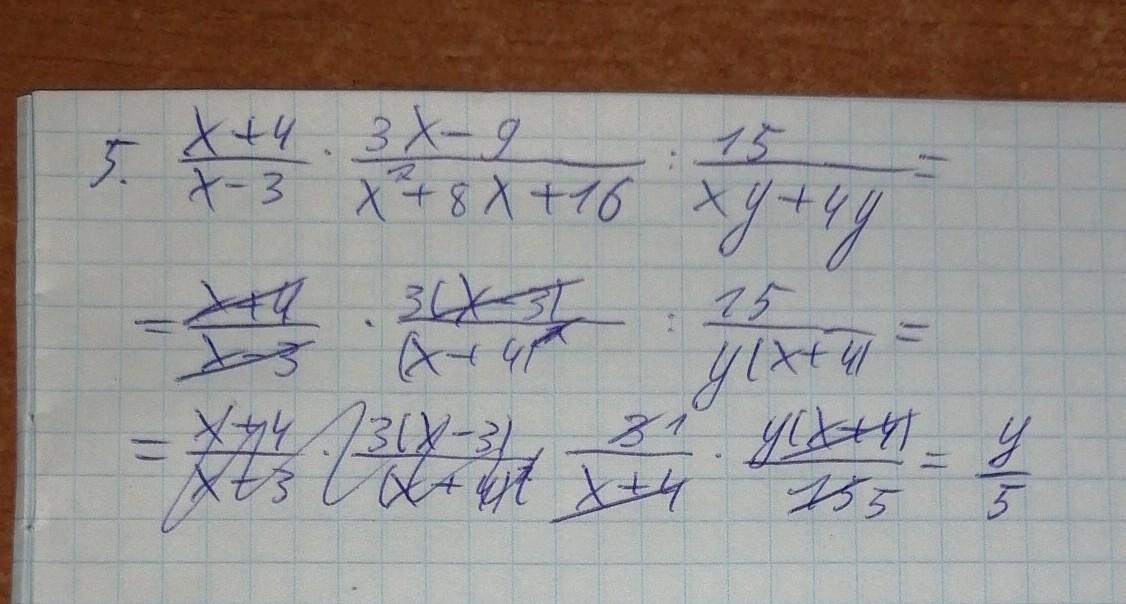 5. (x+4)/(x-3) · (3x-9)/(x²+8x+16) : 15/(xy+4y) =
= (x+4)/(x-3) · 3(x-3)/(x+4)² : 15/(y(x+4)) =
= (x+4)/(x-3) · 3(x-3)/(x+4)² 3 1/(x+4) · y(x+4)/15 5 = y/5